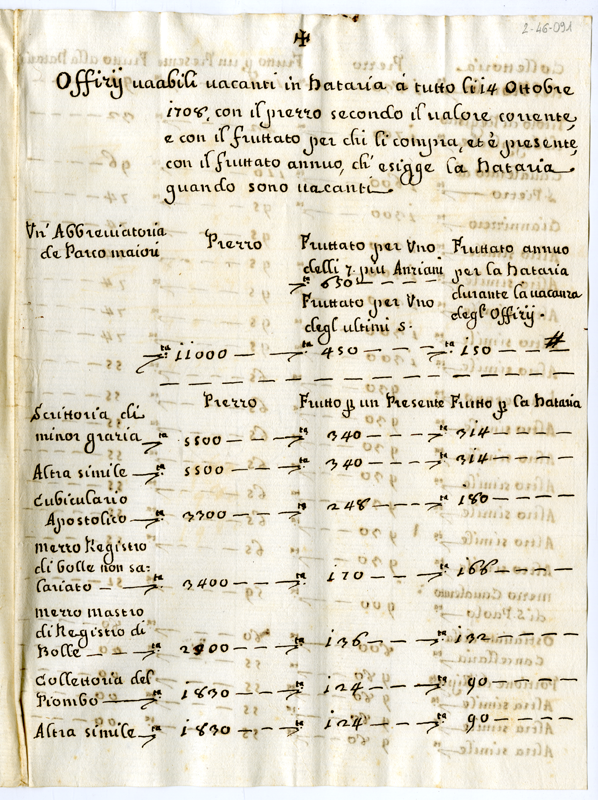 ✠
2-46-091
Offitij vacabili vacanti in Dataria à tutto li 14 Ottobre
1708, con il prezzo secondo il valore corrente,
e con il fruttato per chi li compra, et è presente,
con il fruttato annuo, ch'esigge la Dataria
quando sono vacanti
Un'Abbreviatoria de Parco maiori
Prezzo
Fruttato per Uno
delli 7. più Anziani
650
Fruttato per Uno
degl'ultimi 5.
Fruttato annuo
per la Dataria
durante la vacanza
degl'Offitij.
11000 450 150 #
Scrittoria di
minor grazia
Prezzo Frutto p un Presente Frutto p la Dataria
5500 340 314
Altra simile 5500 340 314
Cubiculario
Apostolico 3300 248 180
mezzo Registro
di bolle non sa:
lariato 3400 170 166
mezzo mastro
di Registro di
Bolle 136 132
Collettoria del
Piombo 1830 124 90
Altra simile 1830 124 90